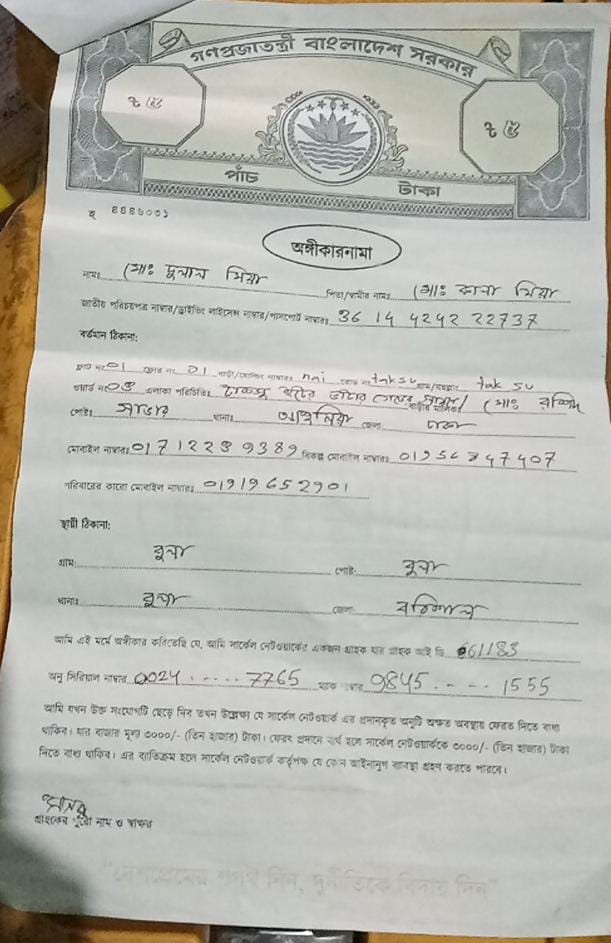 গণপ্রজাতন্ত্রী বাংলাদেশ সরকার
৳ ৫ ৳ ৫
পাঁচ টাকা
অঙ্গীকারনামা
নামঃ মোঃ দুলাল মিয়া
পিতা/স্বামীর নামঃ মোঃ কালা মিয়া
জাতীয় পরিচয়পত্র নাম্বার/ড্রাইভিং লাইসেন্স নাম্বার/পাসপোর্ট নাম্বারঃ 36 14 4242 22737
বর্তমান ঠিকানা:
ফ্লাট নং 01 ফ্লোর নং 01 বাড়ী/হোল্ডিং নাম্বারঃ nai রোড নং taksu গ্রাম/মহল্লাঃ tak su
ওয়ার্ড নং 03 এলাকা পরিচিতিঃ বাড়ীর মালিকঃ মোঃ রশিদ
পোষ্টঃ সাভার থানাঃ আশুলিয়া জেলা ঢাকা
মোবাইল নাম্বারঃ 01712289389 বিকল্প মোবাইল নাম্বারঃ
পরিবারের কারো মোবাইল নাম্বারঃ 01919652901
স্থায়ী ঠিকানা:
গ্রাম: পোষ্ট:
থানাঃ জেলা: বরিশাল
আমি এই মর্মে অঙ্গীকার করিতেছি যে, আমি সার্কেল নেটওয়ার্কের একজন গ্রাহক যার গ্রাহক আই ডি 61183
অনু সিরিয়াল নাম্বার 0024 ..... 7765 ম্যাক নাম্বার 9845 .- - - . 1555
আমি যখন উক্ত সংযোগটি ছেড়ে দিব তখন উল্লেক্ষ্য যে সার্কেল নেটওয়ার্ক এর প্রদানকৃত অনুটি অক্ষত অবস্থায় ফেরত দিতে বাধ্য
থাকিব। যার বাজার মূল্য ৩০০০/- (তিন হাজার) টাকা। ফেরৎ প্রদানে ব্যর্থ হলে সার্কেল নেটওয়ার্ককে ৩০০০/- (তিন হাজার) টাকা
দিতে বাধ্য থাকিব। এর ব্যতিক্রম হলে সার্কেল নেটওয়ার্ক কর্তৃপক্ষ যে কোন আইনানুগ ব্যবস্থা গ্রহণ করতে পারবে।
গ্রাহকের পুরো নাম ও স্বাক্ষর
"দেশপ্রেমের শপথ নিন, দুর্নীতিকে বিদায় দিন"